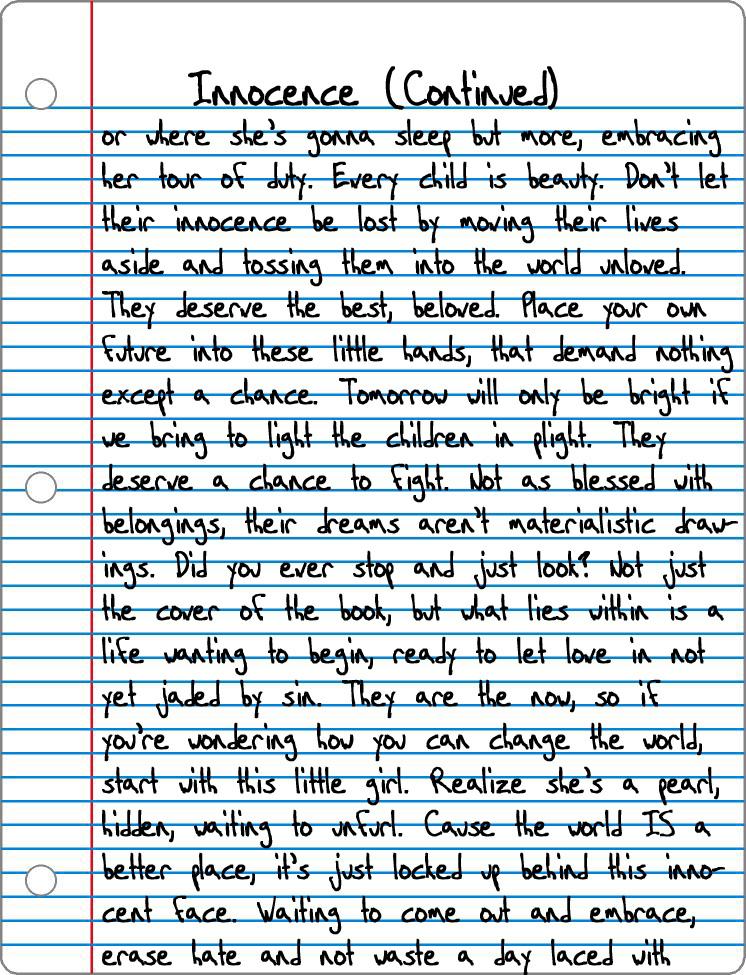 Innocence (Continued)
or where she's gonna sleep but more, embracing
her tour of duty. Every child is beauty. Don't let
their innocence be lost by moving their lives
aside and tossing them into the world unloved.
They deserve the best, beloved. Place your own
future into these little hands, that demand nothing
except a chance. Tomorrow will only be bright if
we bring to light the children in plight. They
deserve a chance to fight. Not as blessed with
belongings, their dreams aren't materialistic draw-
ings. Did you ever stop and just look? Not just
the cover of the book, but what lies within is a
life wanting to begin, ready to let love in not
yet jaded by sin. They are the now, so if
you're wondering how you can change the world,
start with this little girl. Realize she's a pearl,
hidden, waiting to unfurl. Cause the world IS a
better place, it's just locked up behind this inno-
cent face. Waiting to come out and embrace,
erase hate and not waste a day laced with